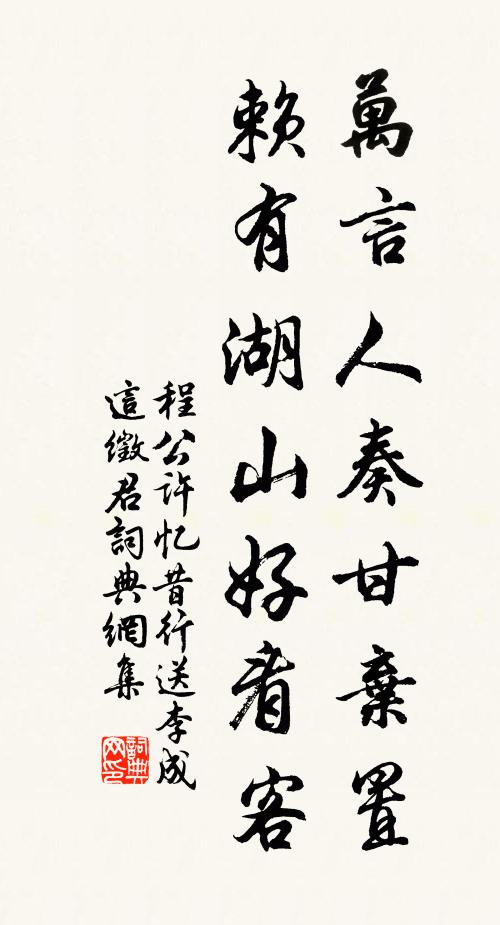 萬言人奏甘棄置
賴有湖山好看客
程公许忆昔行送李成
這徵君詞典網集
詞典網印